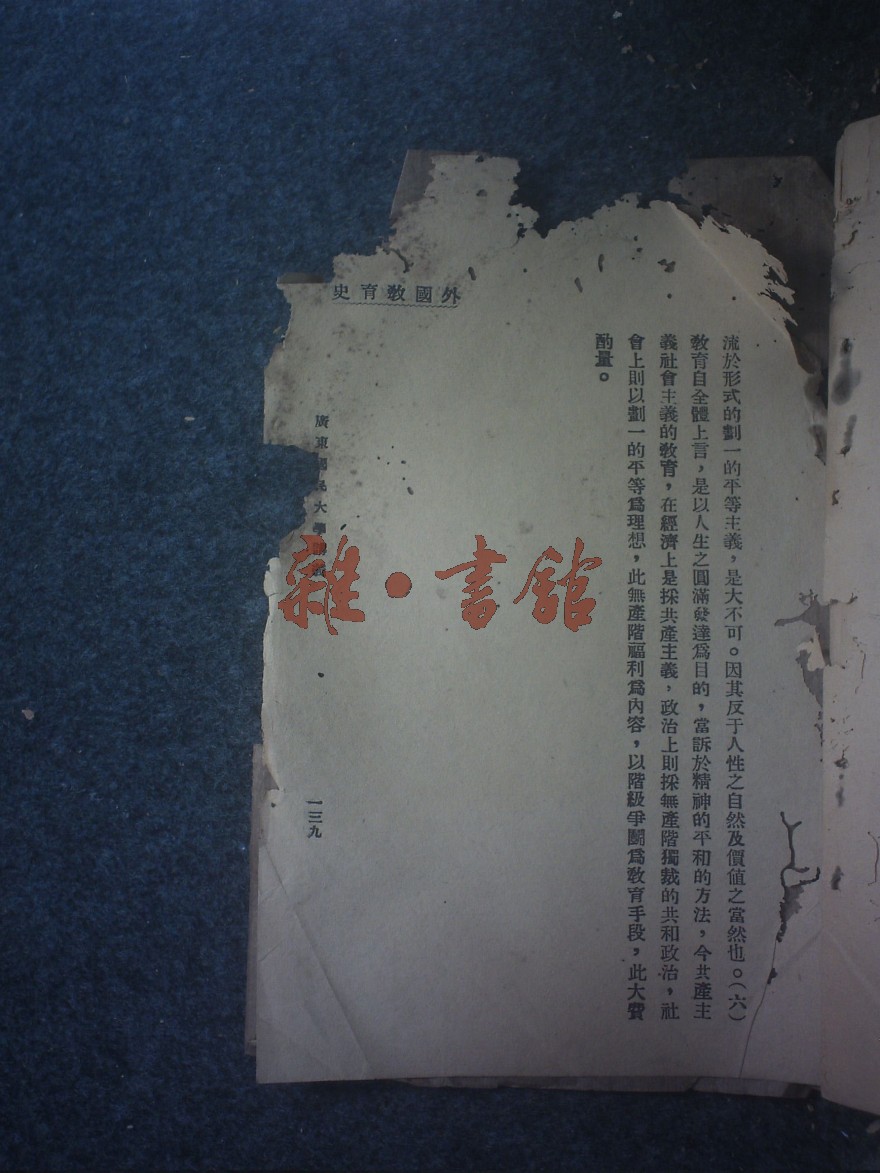 外國敎育史
流於形式的劃一的平等主義，是大不可。因其反于人性之自然及價値之當然也。（六）
敎育自全體上言，是以人生之圓滿發達爲目的，當訴於精神的平和的方法，今共產主
義社會主義的敎育，在經濟上是採共產主義，政治上則採無產階獨裁的共和政治，社
會上則以劃一的平等爲理想，此無產階福利爲內容，以階級爭鬭爲敎育手段，此大費
酌量。
廣東國民大學講義
一三九
雜·書館